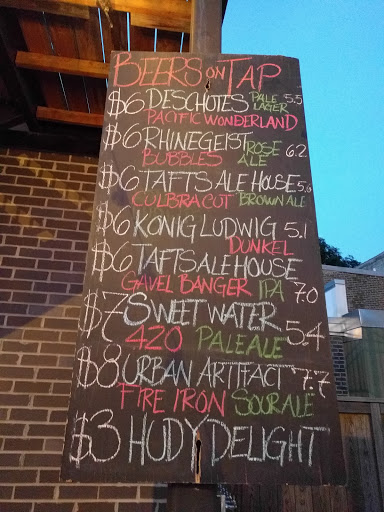 BEERS ON TAP
$6 DESCHOTES PALE LAGER 5.5
PACIFIC WONDERLAND
$6 RHINEGEIST ROSE ALE 6.2
BUBBLES
$6 TAFTS ALE HOUSE 5.6
CULBRACUT BROWN ALE
$6 KONIG LUDWIG 5.1
DUNKEL
$6 TAFTS ALE HOUSE
GAVEL BANGER IPA 7.0
$7 SWEET WATER 5.4
420 PALE ALE
$8 URBAN ARTIFACT 7.7
FIRE IRON SOUR ALE
$3 HUDY DELIGHT